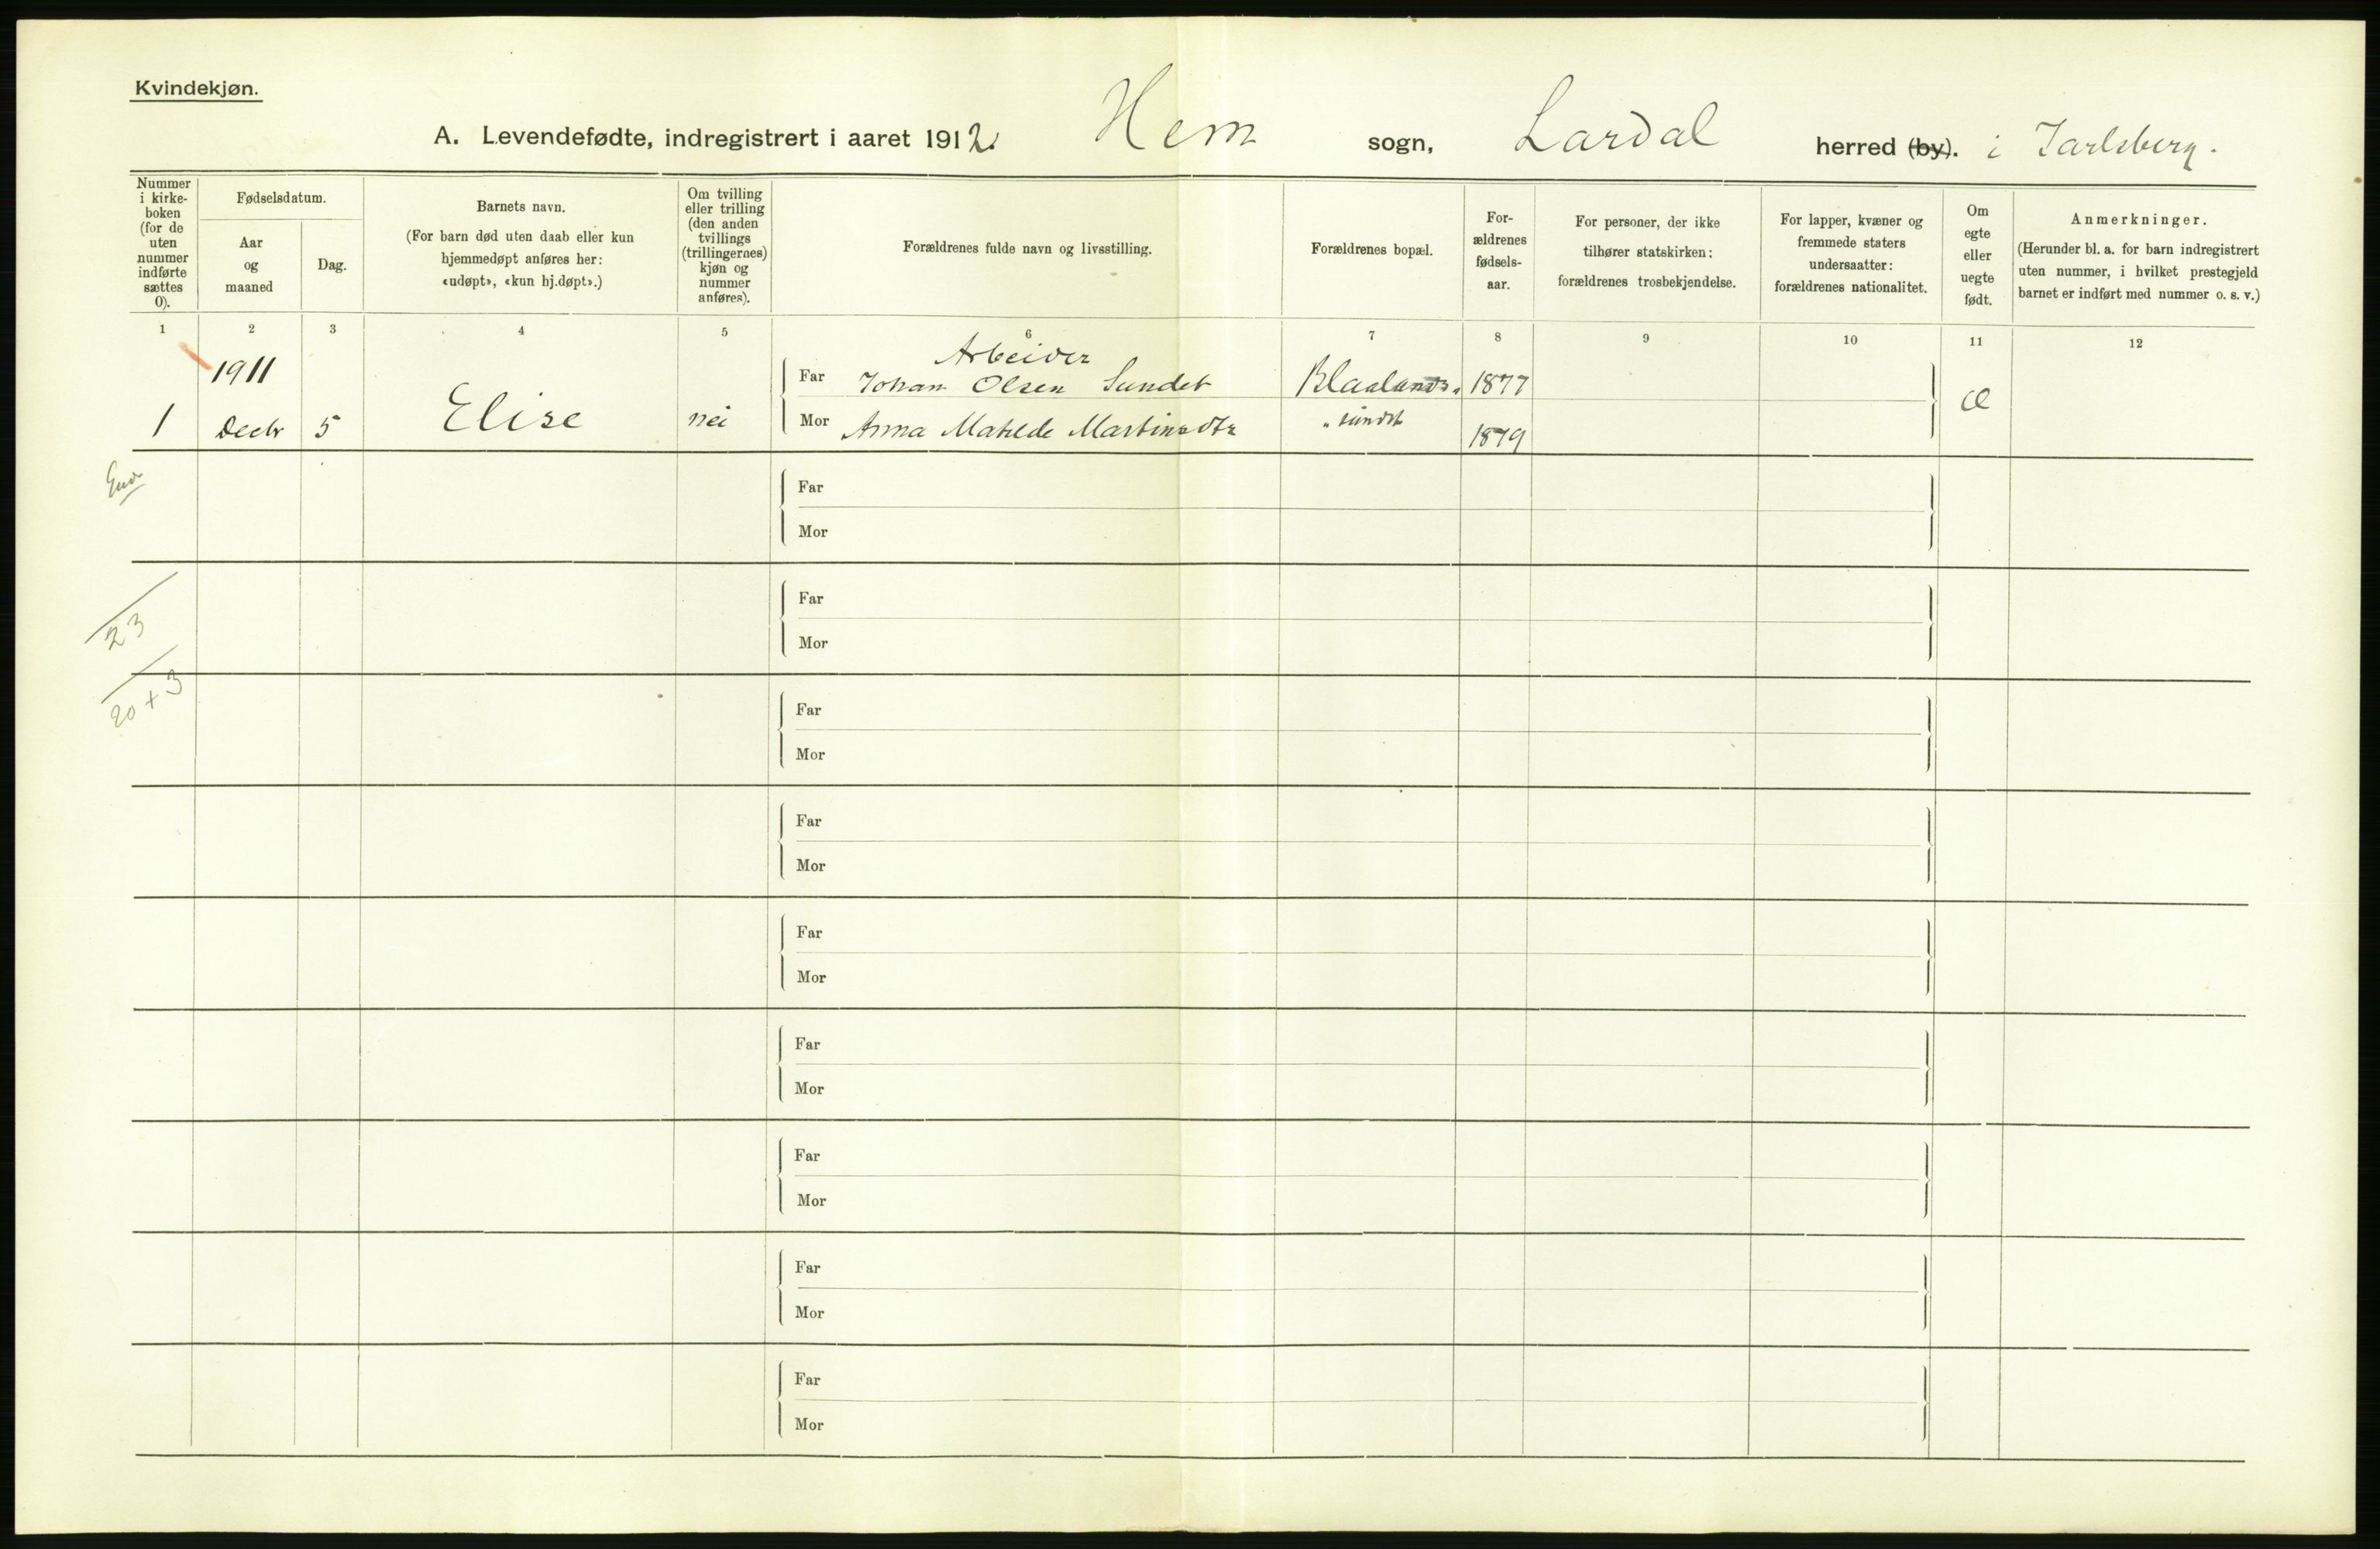 Kvindekjøn.
A. Levendefødte, indregistrert i aaret 1912. Hem sogn, Lardal herred (by). i Jarlsberg.
Nummer
i kirke-
boken
(for de
uten
nummer
indførte
sættes
0).
Fødselsdatum.
Aar
og
maaned
Dag.
Barnets navn.
(For barn død uten daab eller kun
hjemmedøpt anføres her:
«udøpt», «kun hj.døpt».)
Om tvilling
eller trilling
(den anden
tvillings
(trillingernes)
kjøn og
nummer
anføres).
Forældrenes fulde navn og livsstilling.
Forældrenes bopæl.
For-
ældrenes
fødsels-
aar.
For personer, der ikke
tilhører statskirken:
forældrenes trosbekjendelse.
For lapper, kvæner og
fremmede staters
undersaatter:
forældrenes nationalitet.
Om
egte
eller
uegte
født.
Anmerkninger.
(Herunder bl. a. for barn indregistrert
uten nummer, i hvilket prestegjeld
barnet er indført med nummer o. s. v.)
1 2 3 4 5 6 7 8 9 10 11 12
Arbeider
1911 Far Johan Olsen Sundet Blaalands- 1877
1 Decbr 5 Elise nei Mor Anna Matilde Martinsdtr "sundet 1879 Æ
Far
Mor
23
Far
Mor
20 + 3
Far
Mor
Far
Mor
Far
Mor
Far
Mor
Far
Mor
Far
Mor
Far
Mor